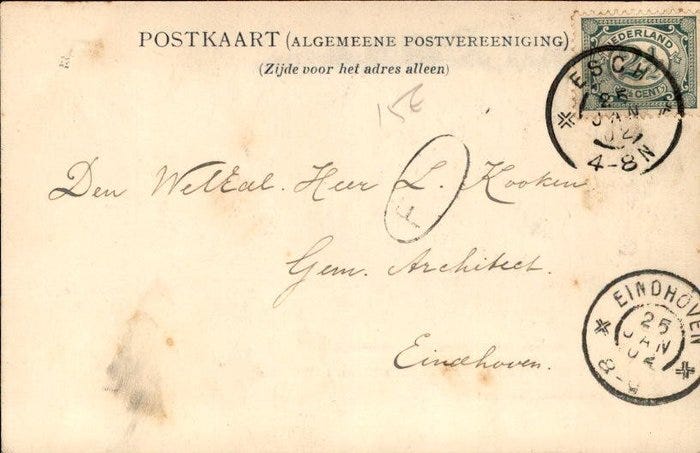 POSTKAART (ALGEMEENE POSTVEREENIGING)
(Zijde voor het adres alleen)
NEDERLAND
2½
CENT
ESCH
25
JAN
02
4-8N
15€
Den WelEd. Heer L. Kooken
F
Gem. Architect.
Eindhoven.
EINDHOVEN
25
JAN
02
8-9